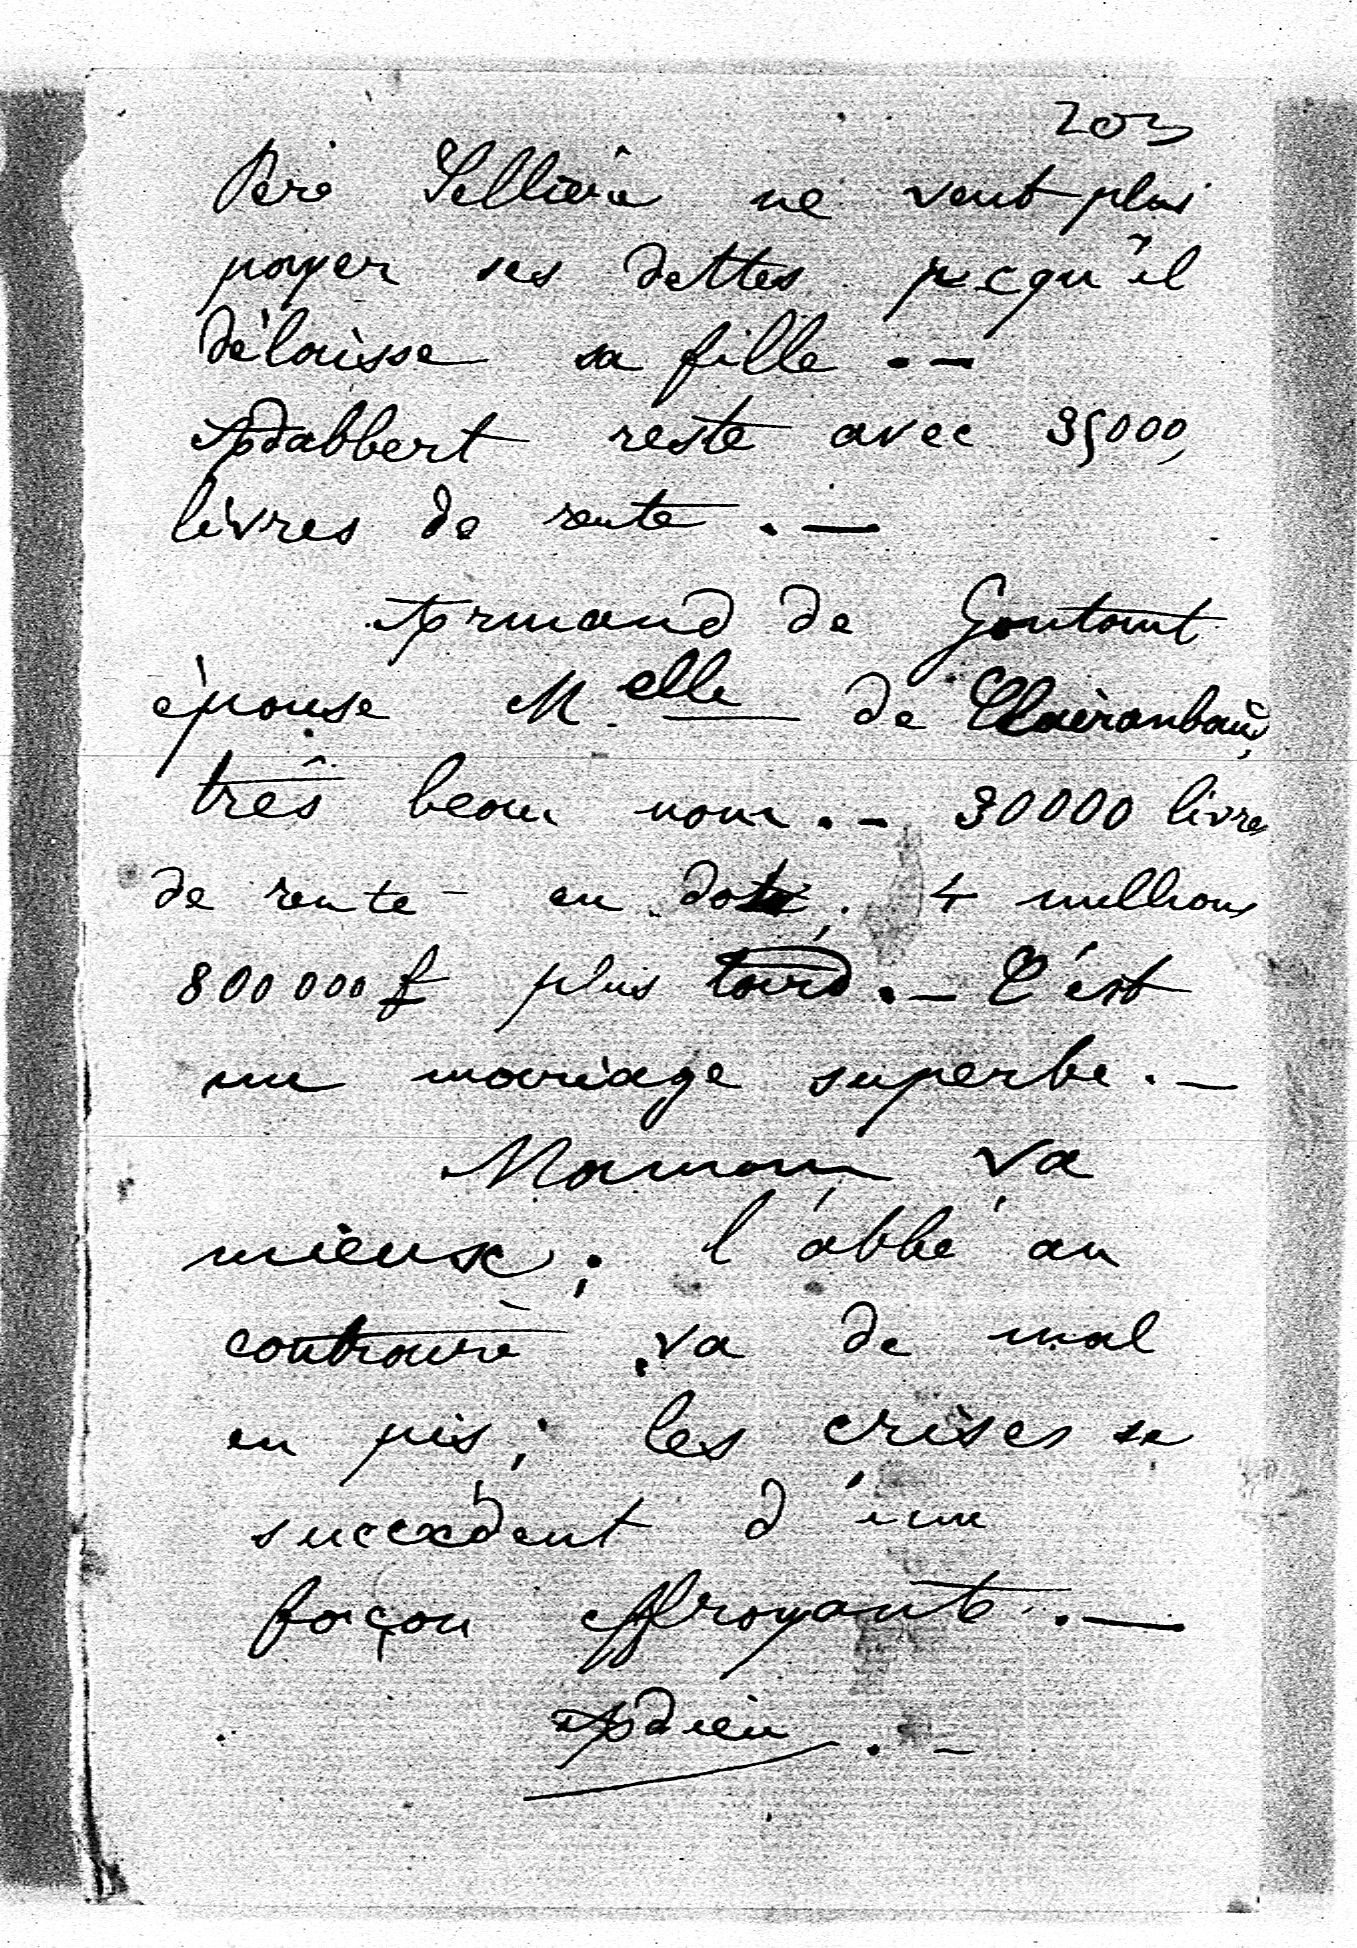 203
Père Sellière ne veut plus
payer ses dettes pcequ'il
délaisse sa fille. —
Adabbert reste avec 35000
livres de rente. —
Armand de Gontaut
épouse Melle de Clairambault,
très beau nom. — 30000 livres
de rente - en dot. 4 millions
800 000 f plus tard. — C'est
un mariage superbe. —
Maman va
mieux; l'abbé au
contraire va de mal
en pis; les crises se
succèdent d'une
façon effroyante. —
Adieu. —